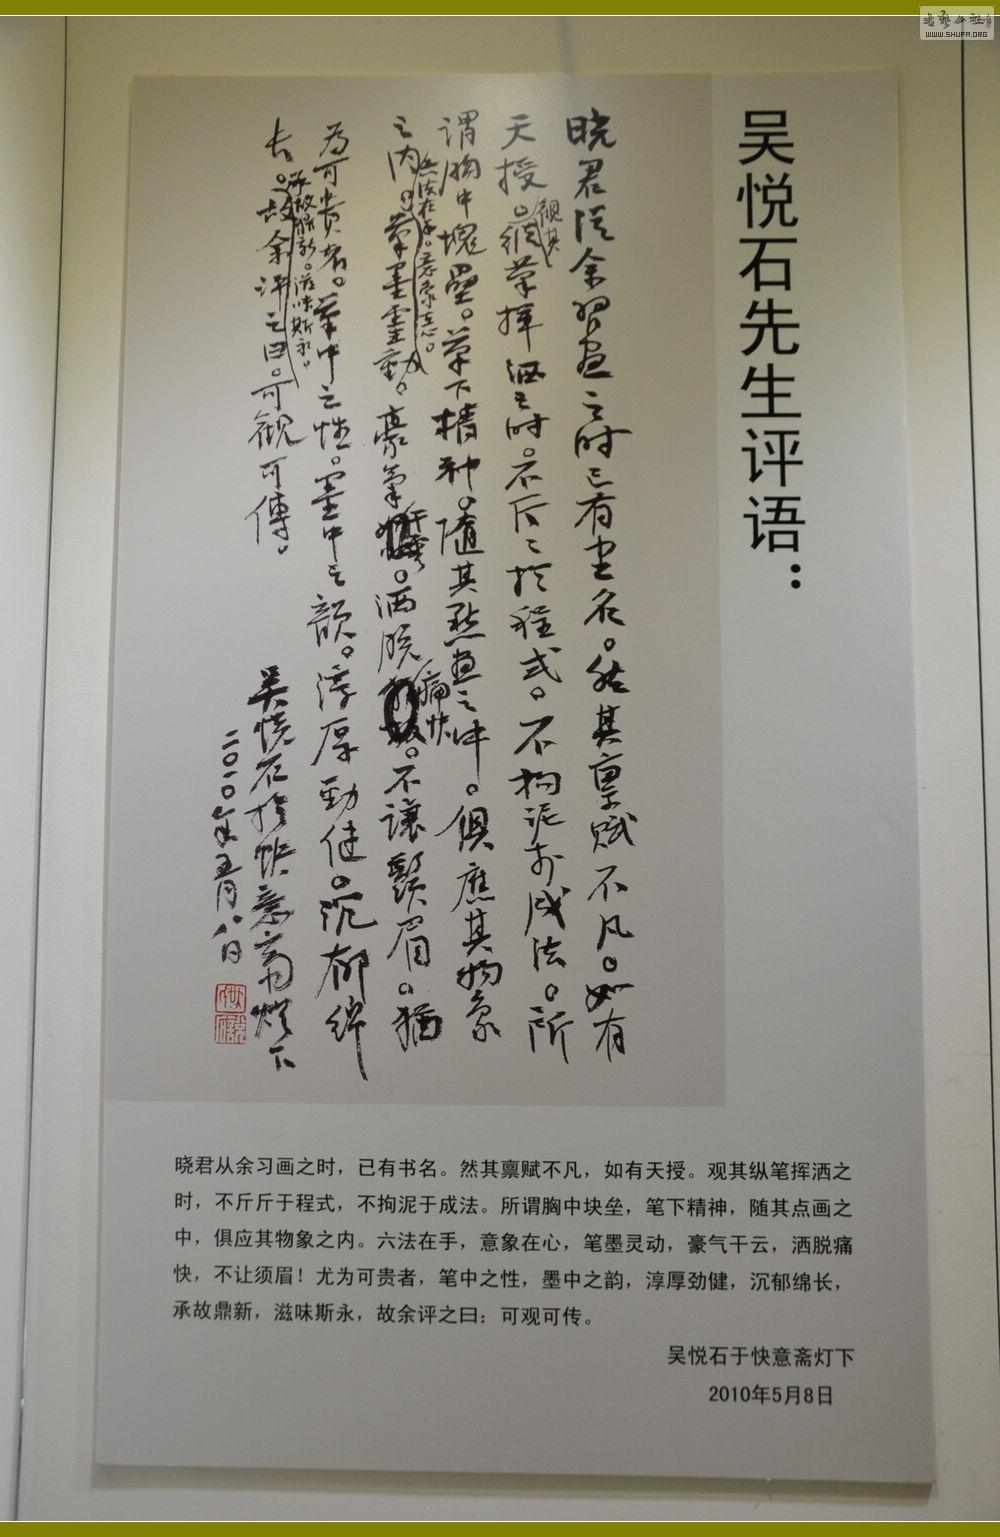 吴悦石先生评语：
晓君从余习画之时已有书名。然其禀赋不凡。如有
天授。观其纵笔挥洒之时。不斤斤于程式。不拘泥于成法。所
谓胸中块垒。笔下精神。随其点画之中。俱应其物象
之内。六法在手。意象在心。笔墨灵动。豪气干云。洒脱痛快。不让须眉。犹
为可贵者。笔中之性。墨中之韵。淳厚劲健。沉郁绵
长。承故鼎新。滋味斯永。故余评之曰。可观可传。
吴悦石于快意斋灯下
二〇一〇年五月八日
晓君从余习画之时，已有书名。然其禀赋不凡，如有天授。观其纵笔挥洒之
时，不斤斤于程式，不拘泥于成法。所谓胸中块垒，笔下精神，随其点画之
中，俱应其物象之内。六法在手，意象在心，笔墨灵动，豪气干云，洒脱痛
快，不让须眉！尤为可贵者，笔中之性，墨中之韵，淳厚劲健，沉郁绵长，
承故鼎新，滋味斯永，故余评之曰：可观可传。
吴悦石于快意斋灯下
2010年5月8日
WWW.SHUFA.ORG